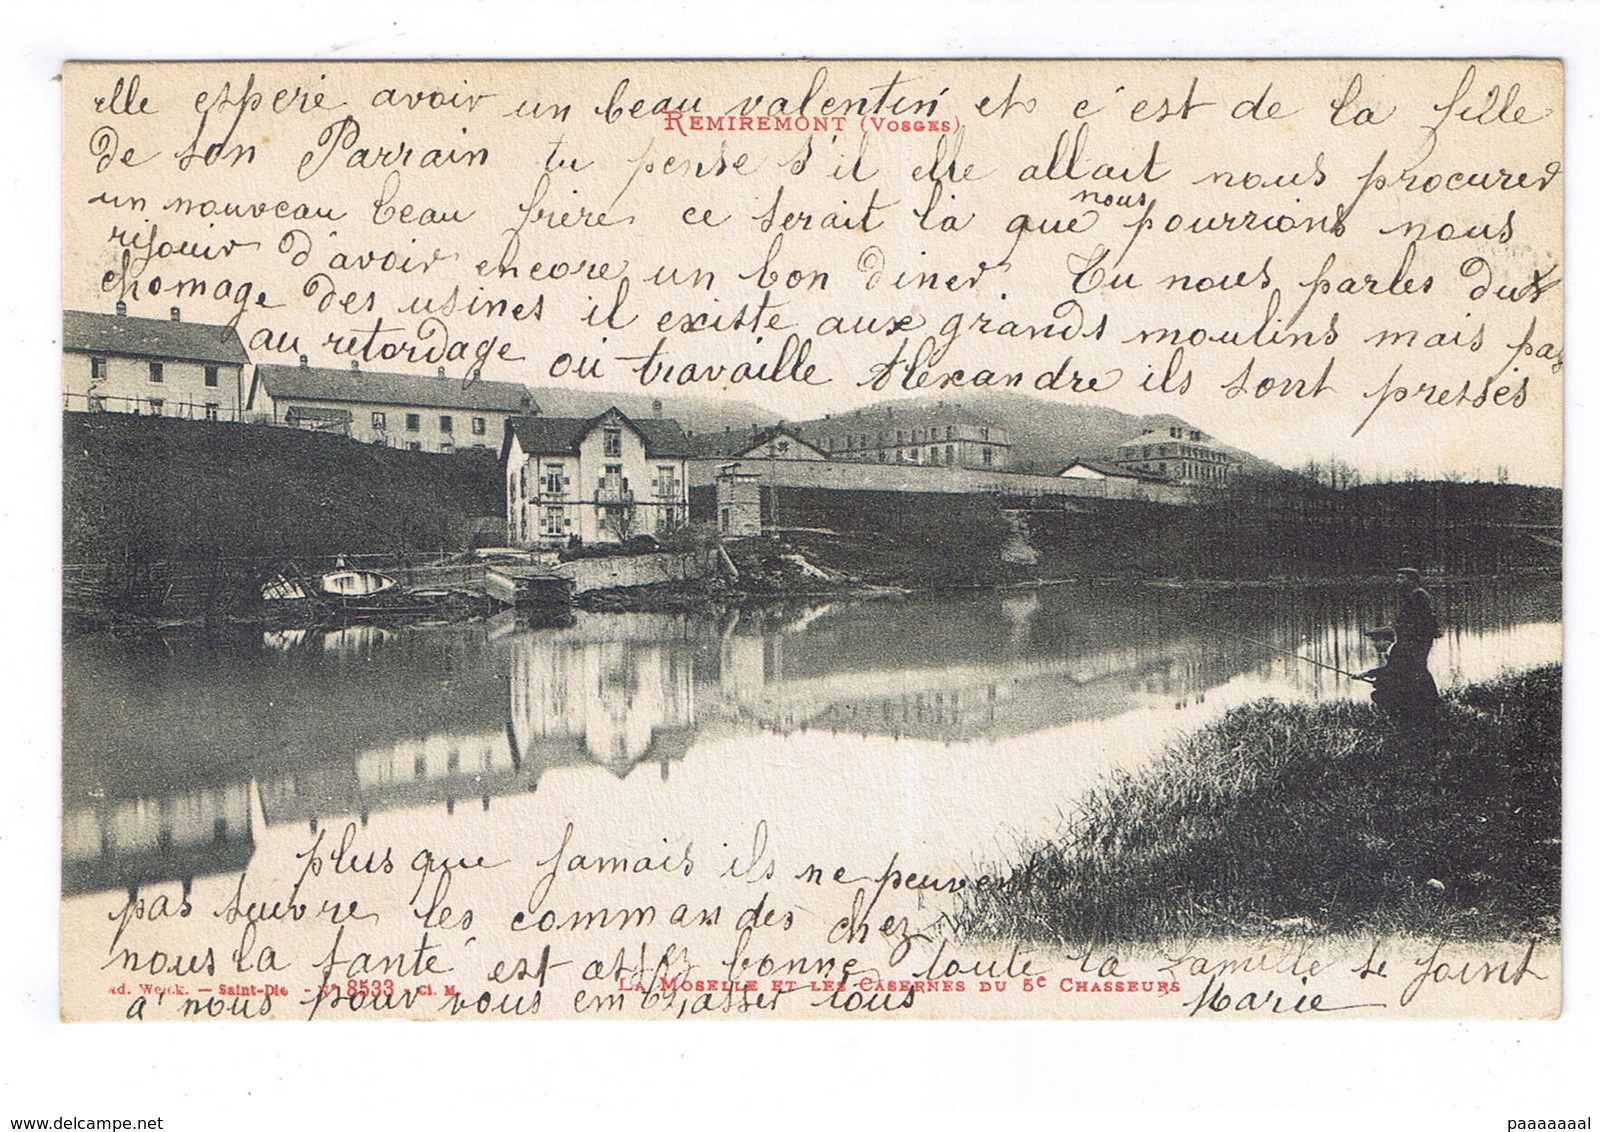 elle espere avoir un beau valentin et c'est de la fille
REMIREMONT (VOSGES)
de son Parrain tu pense s'il elle allait nous procurer
un nouveau beau frère ce serait là que nous pourrions nous
rejouir d'avoir encore un bon diner. Tu nous parles dux
chomage des usines il existe aux grands moulins mais pas
au retordage où travaille Alexandre ils sont pressés
plus que jamais ils ne peuvent
pas suivre les commandes chez
nous la santé est assez bonne toute la famille se joint
Ad. Weick. — Saint-Dié - N° 8533 - Cl. M.
LA MOSELLE ET LES CASERNES DU 5e CHASSEURS
à nous pour vous embrasser tous Marie
www.delcampe.net
paaaaaaal